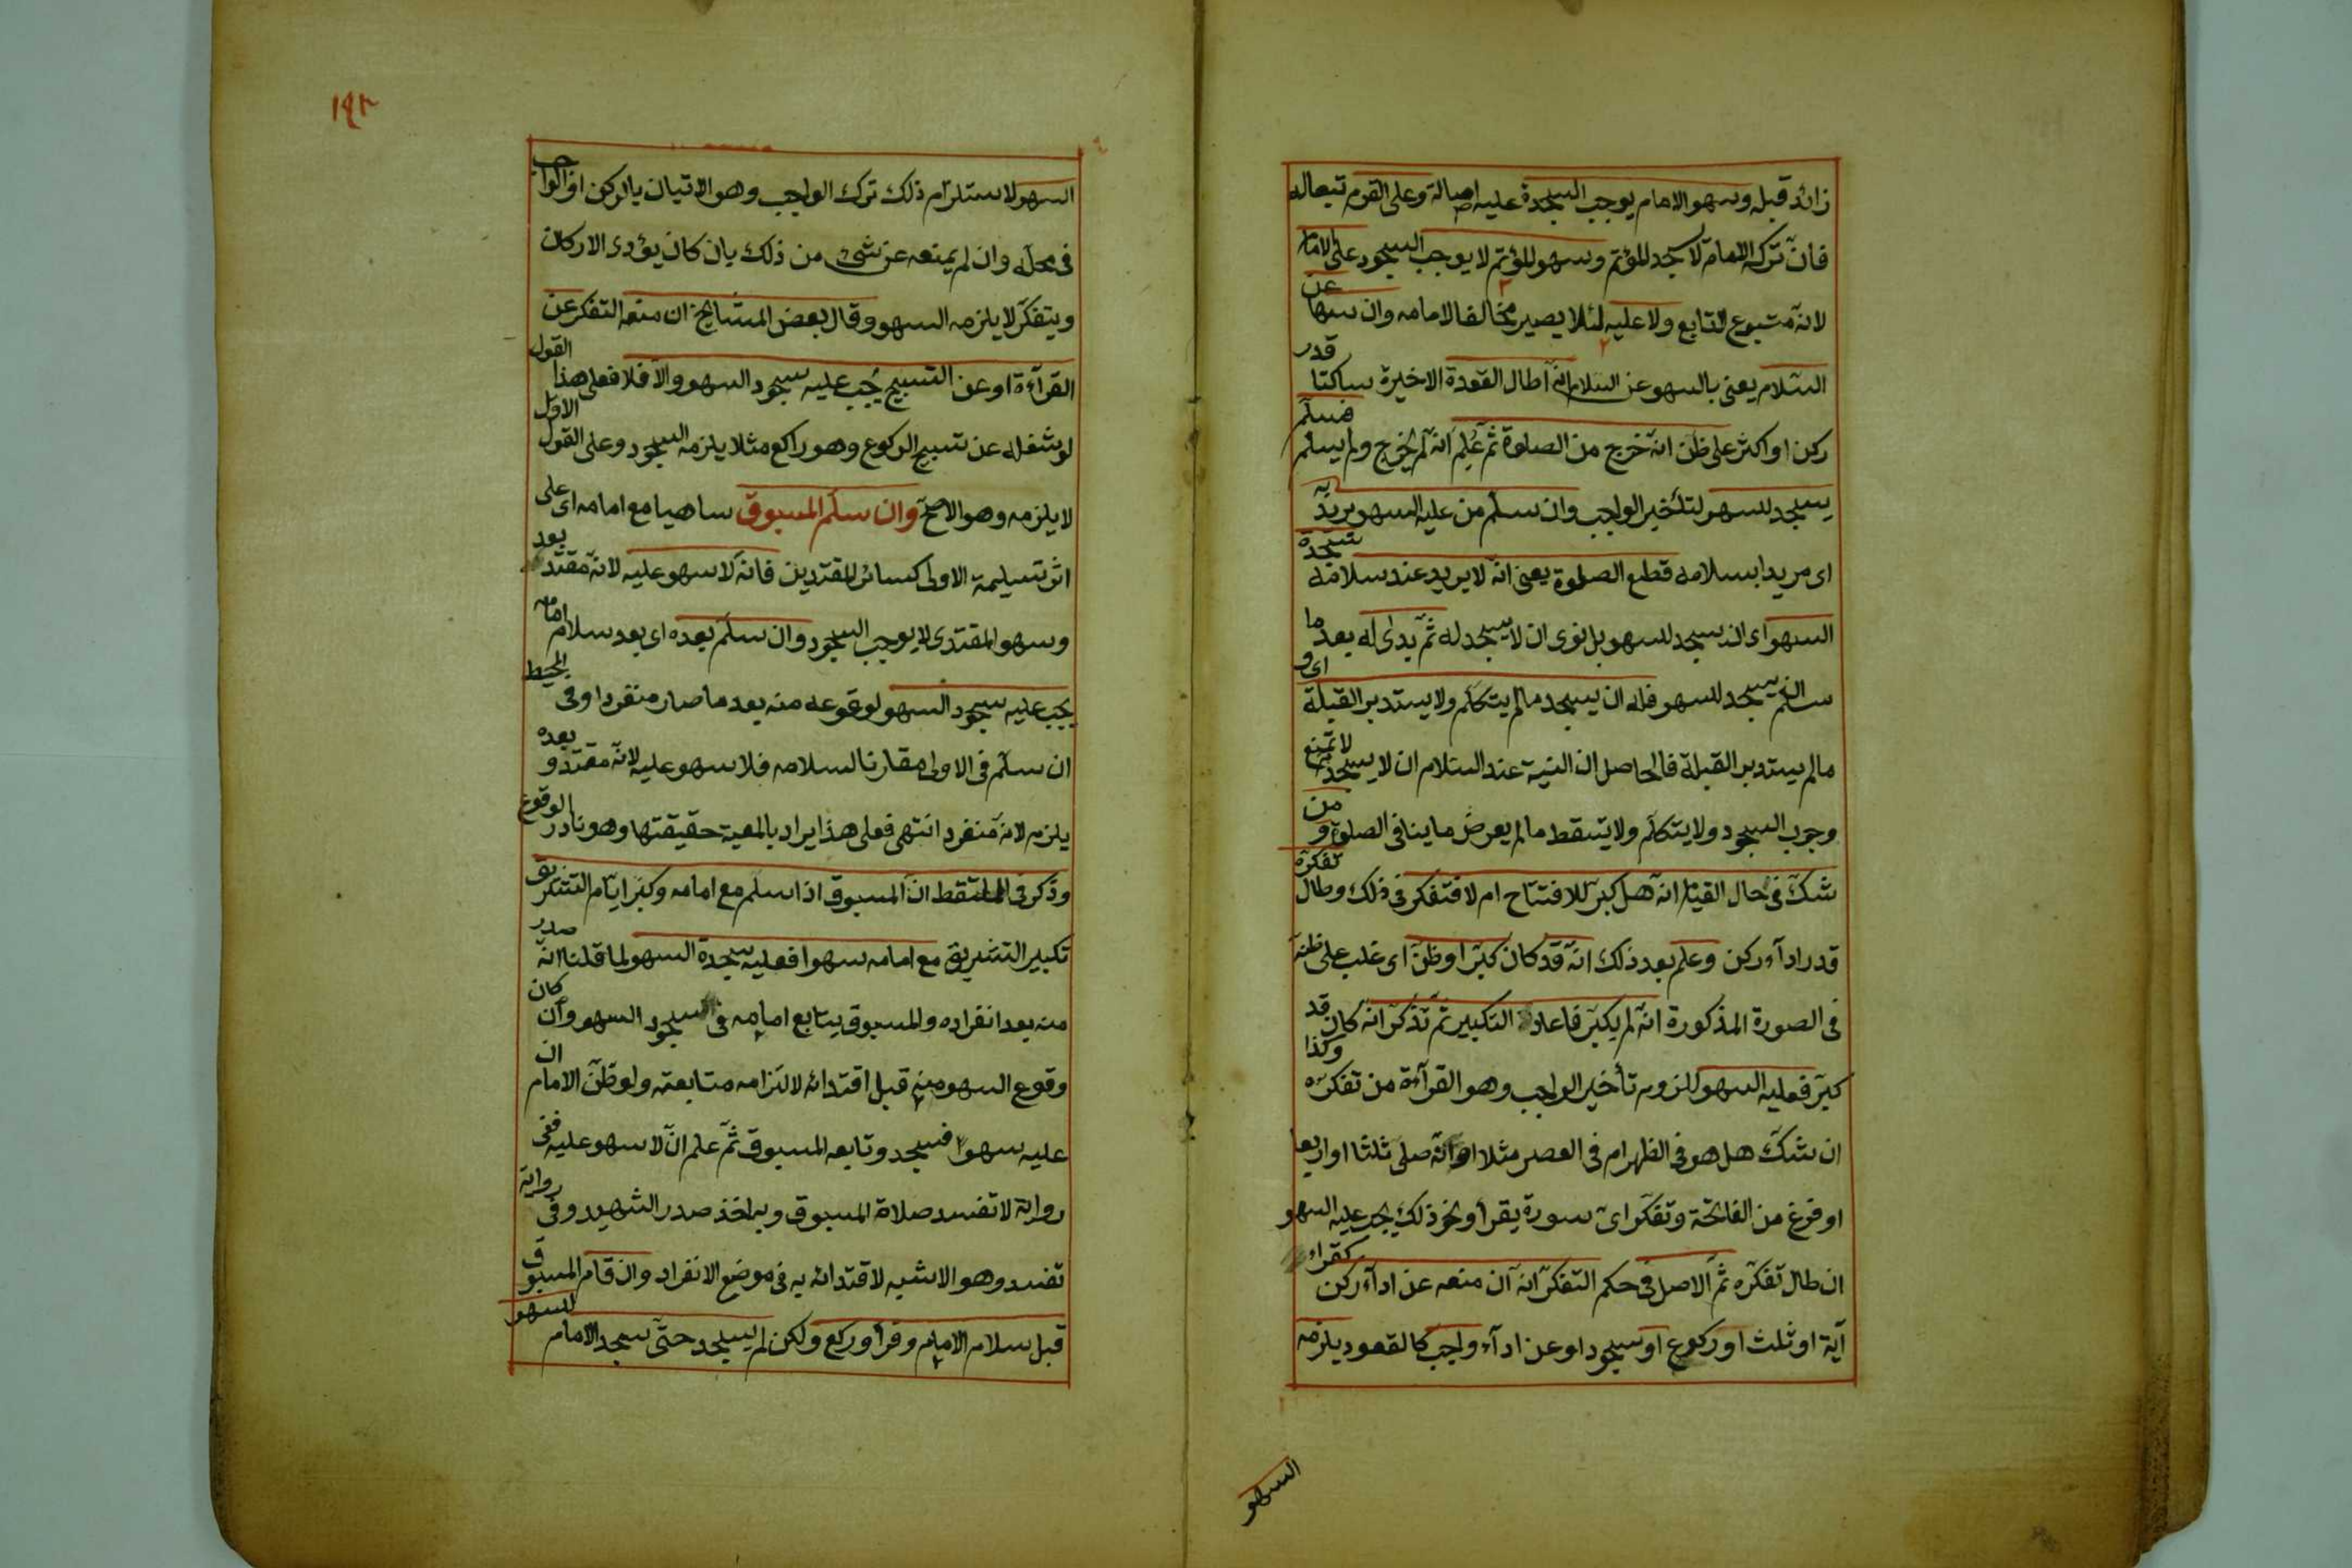 زائد قبله وسهو الامام يوجب السجدة عليه اصالة وعلى القوم تبعا له
فان تركه الامام لا سجد للمؤتم وسهو المؤتم لا يوجب السجود على الامام
لانه متبوع لتابع ولا عليه لئلا يصير مخالفا لامامه وان سها عن
السلام يعنى بالسهو عن السلام انه اطال القعدة الاخيرة ساكتا قدر
ركن او اكثر على ظن انه خرج من الصلوة ثم علم انه لم يخرج ولم يسلم فسلم
يسجد للسهو لتأخير الواجب وان سلم من عليه السهو يريد به
اى مريدا بسلامه قطع الصلوة يعنى انه لا يريد عند سلامه سجدة
السهو اى ان يسجد للسهو بل نوى ان لا يسجد له ثم بدى له بعد ما
سلم ان يسجد للسهو فله ان يسجد ما لم يتكلم ولا يستدبر القبلة اى و
ما لم يستدبر القبلة فالحاصل ان النية عند السلام ان لا يسجد لا تمنع
وجوب السجود ولا يتكلم ولا يسقط ما لم يعرض ما ينافى الصلوة و من
شك فى حال القيام انه هل كبر للافتتاح ام لا فتفكر فى ذلك وطال تفكره
قدر ادآء ركن وعلم بعد ذلك انه قد كان كبر او ظن اى غلب على ظنه
فى الصورة المذكورة انه لم يكبر فاعاد التكبير ثم تذكر انه كان قد
كبر فعليه السهو للزوم تأخير الواجب وهو القرآءة من تفكره وكذا
ان شك هل هو فى الظهر ام فى العصر مثلا او انه صلى ثلثا او اربعا
او فرغ من الفاتحة وتفكر اى سورة يقرأ ونحو ذلك يجب عليه السهو
ان طال تفكره ثم الاصل فى حكم التفكر انه ان منعه عن ادآء ركن كقراءة
آية او ثلث او ركوع او سجود او عن ادآء واجب كالقعود يلزمه
السهو
١٩٣
السهو لاستلزام ذلك ترك الواجب وهو الاتيان بالركن او الواجب
فى محله وان لم يمنعه عن شئ من ذلك بان كان يؤدى الاركان
ويتفكر لا يلزمه السهو وقال بعض المشايخ ان منعه التفكر عن
القرآءة او عن التسبيح يجب عليه سجود السهو والا فلا فعلى هذا القول
لو شغله عن تسبيح الركوع وهو راكع مثلا يلزمه السجود وعلى القول الاول
لا يلزمه وهو الاصح وان سلم المسبوق ساهيا مع امامه اى على
اثر تسليمة الاولى كسائر المقتدين فانه لا سهو عليه لانه مقتد بعد
وسهو المقتدى لا يوجب السجود وان سلم بعده اى بعد سلام امامه
يجب عليه سجود السهو لوقوعه منه بعد ما صار منفردا وفى المحيط
ان سلم فى الاولى مقارنا لسلامه فلا سهو عليه لانه مقتد و بعده
يلزم لانه منفرد انتهى فعلى هذا يراد بالمعية حقيقتها وهو نادر الوقوع
وذكر فى الملتقط ان المسبوق اذا سلم مع امامه وكبر ايام التشريق
تكبير التشريق مع امامه سهوا فعليه سجدة السهو لما قلنا انه صدر
منه بعد انفراده والمسبوق يتابع امامه فى سجود السهو وان كان
وقوع السهو منه قبل اقتدائه لالتزامه متابعته ولو ظن الامام ان
عليه سهوا فسجد وتابعه المسبوق ثم علم ان لا سهو عليه ففى
رواية لا تفسد صلاة المسبوق وبه اخذ صدر الشهيد وفى رواية
تفسد وهو الاشبه لاقتدائه به فى موضع الانفراد وان قام المسبوق
قبل سلام الامام وقرأ وركع ولكن لم يسجد حتى سجد الامام للسهو